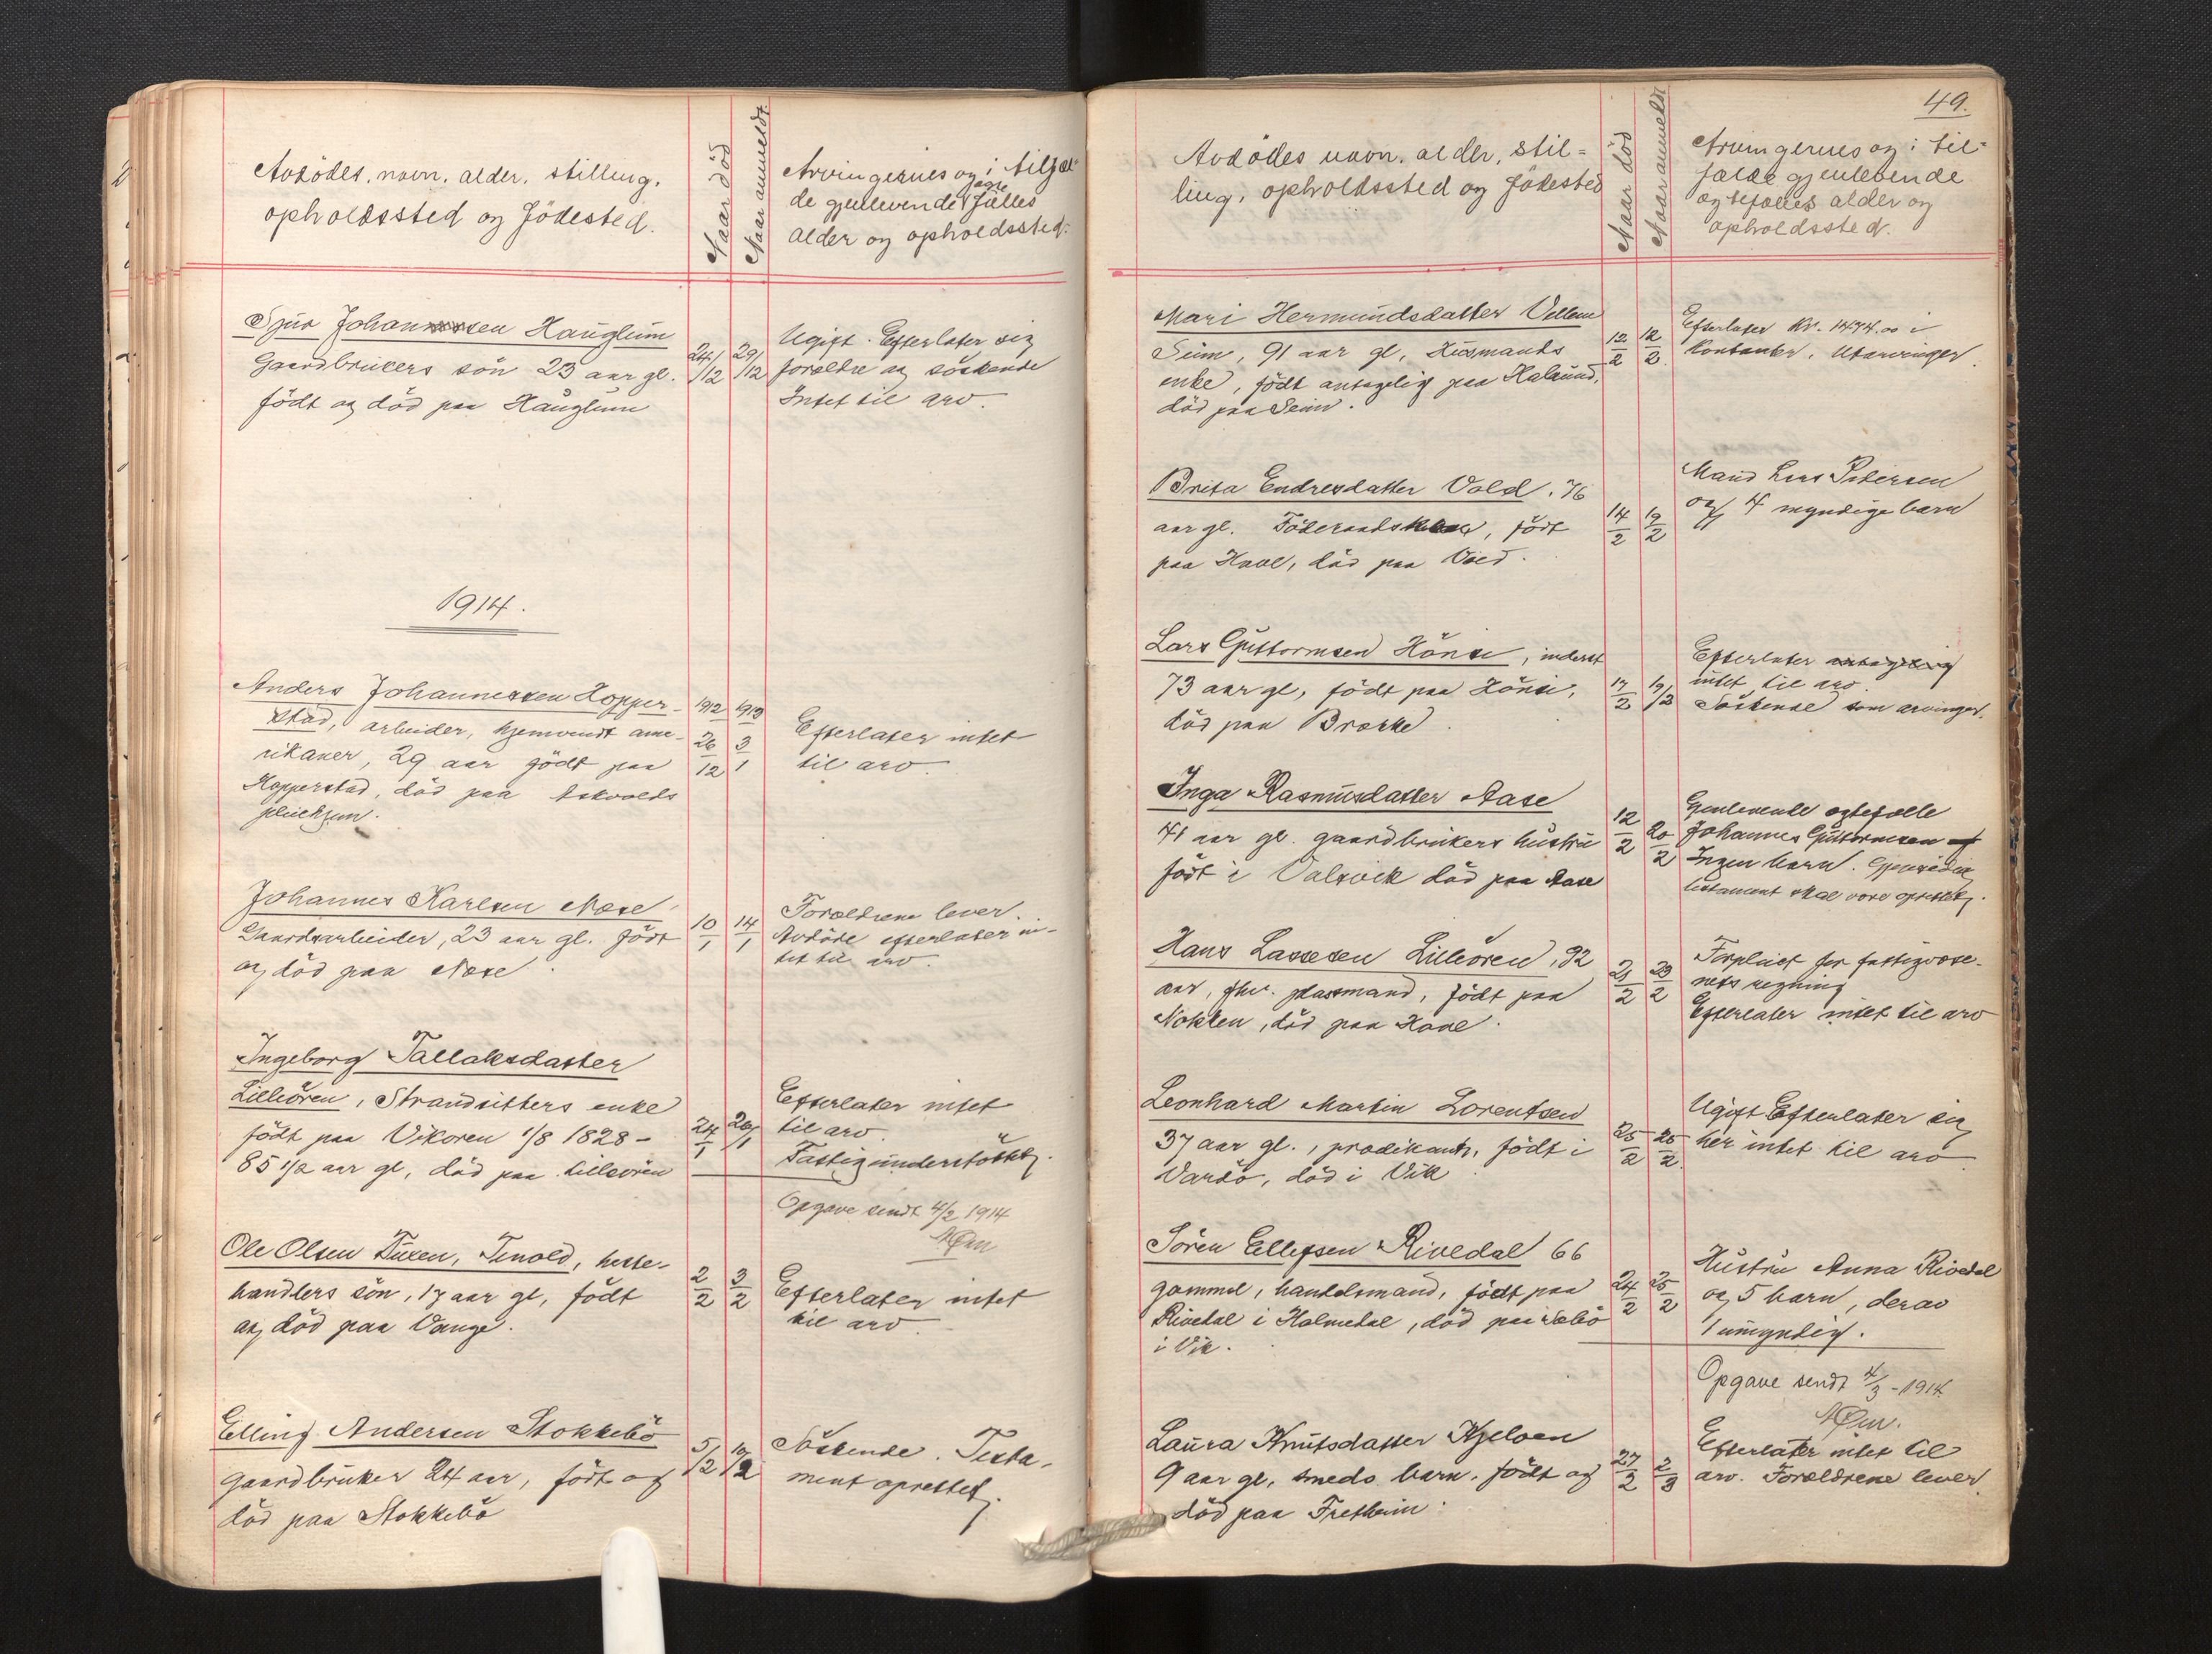 Avdödes, navn, alder, stilling,
opholdssted og födested.
Naar död
Naar anmeldt.
Arvingernes og i tilfæl-
de gjenlevende ægtefælles
alder og opholdssted.
Sjur Johannessen Hauglum
Gaardbrukers sön 23 aar gl.
födt og död paa Hauglum
24/12
29/12
Ugift. Efterlater sig
foreldre og söskende
Intet til arv.
1914.
Anders Johannessen Hopper-
stad, arbeider, hjemvendt ame-
rikaner, 29 aar födt paa
Hopperstad, död paa Askvolds
pleiehjem.
1912 26/12
1913 3/1
Efterlater intet
til arv.
Johannes Karlsen Nese
Gaardsarbeider, 23 aar gl. födt
og död paa Nese.
10/1
14/1
Foreldrene lever.
Avdöde efterlater in-
tet til arv.
Ingeborg Tallaksdatter
Lilleören, Strandsitters enke
födt paa Vikören 1/8 1828 -
85 1/2 aar gl, död paa Lilleören
24/1
26/1
Efterlater intet
til arv.
Fattigunderstöttet.
Opgave sendt 4/2 1914
Ole Olsen Tuxen, Tenold, heste-
handlers sön, 17 aar gl, födt
og död paa Vange.
2/2
3/2
Efterlater intet
til arv.
Elling Andersen Stokkebö
gaardbruker 24 aar, födt og
död paa Stokkebö
5/2
10/2
Söskende. Testa-
ment oprettet.
49.
Avdödes navn, alder, stil=
ling, opholdssted og födested
Naar död
Naar anmeldt
Arvingernes og i til-
fælde gjenlevende
ægtefælles alder og
opholdssted.
Mari Hermundsdatter Vellene
Seim, 91 aar gl, Husmands
enke, födt antagelig paa Halsund,
död paa Seim.
12/2
12/2
Efterlater Kr. 1474.00 i
kontanter. Utarvinger
Brita Endresdatter Vold, 76
aar gl. Föderaadskone, födt
paa Hove, död paa Vold.
14/2
19/2
Mand Lars Petersen
og 4 myndige barn
Lars Guttormsen Hönsi, inderst
73 aar gl, födt paa Hönsi,
död paa Brække.
17/2
19/2
Efterlater antagelig
intet til arv.
Söskende som arvinger.
Inga Rasmusdatter Aase
41 aar gl. gaardbrukers hustru
födt i Valsvik död paa Aase
12/2
20/2
Gjenlevende egtefelle
Johannes Guttormsen
Ingen barn. Gjensidig
testament skal være oprettet.
Hans Lassesen Lilleören, 92
aar, fhv. plassmand, födt paa
Nökken, död paa Hove.
21/2
23/2
Forpleiet for fattigvæse-
nets regning
Efterlater intet til arv
Leonhard Martin Lorentsen
37 aar gl., prædikant, födt i
Vardö, död i Vik
25/2
25/2
Ugift Efterlater sig
her intet til arv
Sören Ellefsen Rivedal 66
gammel, handelsmand, födt paa
Rivedal i Holmedal, död paa Sæbö
i Vik.
24/2
25/2
Hustru Anna Rivedal
og 5 barn, derav
1 umyndig.
Opgave sendt 4/3 - 1914
Laura Knutsdatter Hjelven
9 aar gl, smeds barn, födt og
död paa Fretheim.
27/2
2/3
Efterlater intet til
arv. Foreldrene lever.